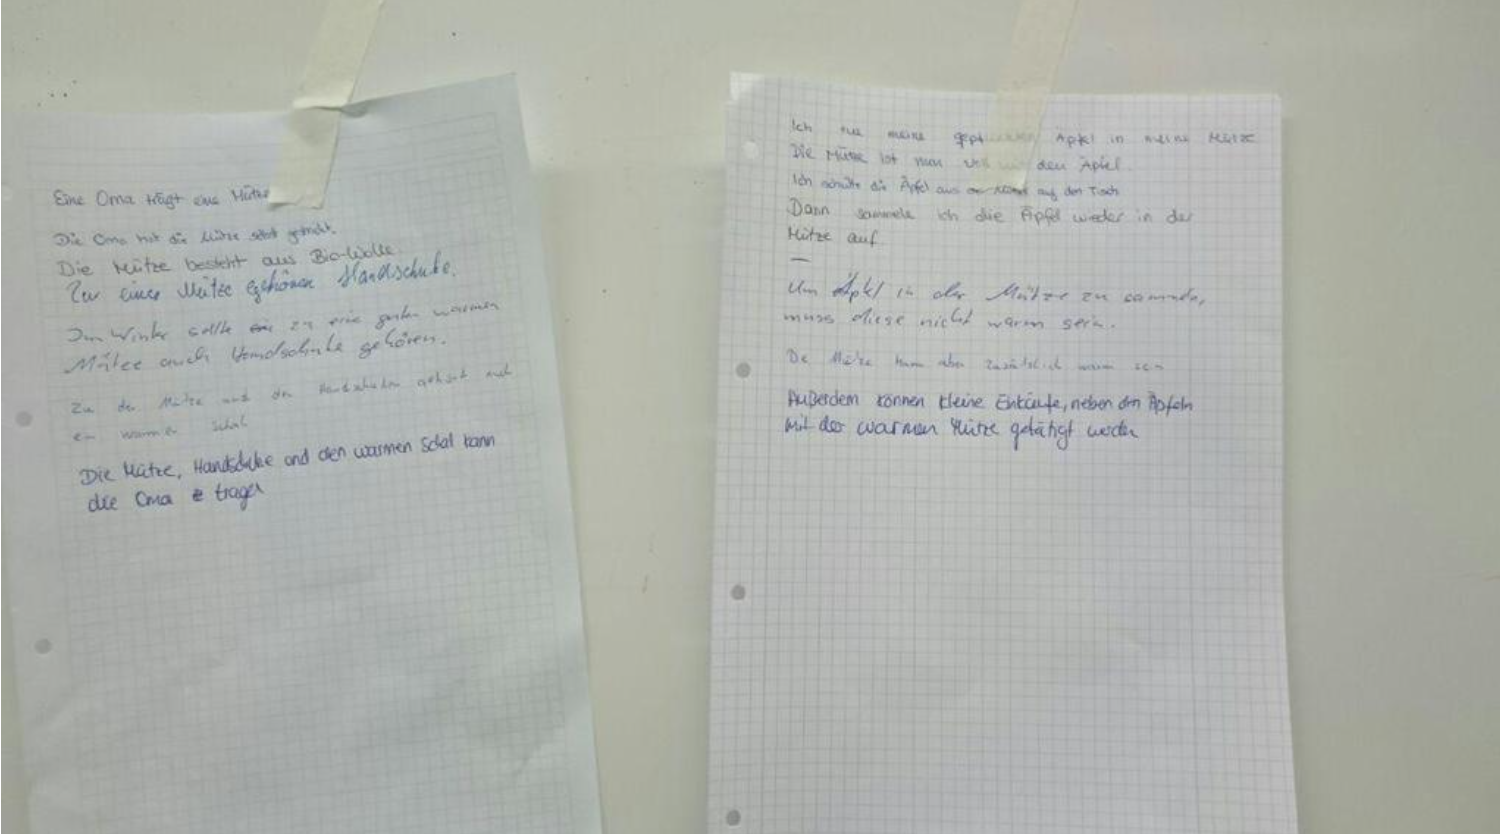 Eine Oma trägt eine Mütze
Die Oma hat die Mütze selbst gestrickt.
Die Mütze besteht aus Bio-Wolle.
Zur einer Mütze gehören Handschuhe.
Im Winter sollte zu eine guten warmen
Mütze auch Handschuhe gehören.
Zu der Mütze und den Handschuhen gehört auch
ein warmer Schal
Die Mütze, Handschuhe und den warmen Schal kann
die Oma tragen
Ich tue meine gepflückten Äpfel in meine Mütze
Die Mütze ist nun voll mit den Äpfel.
Ich schütte die Äpfel aus der auf den Tisch
Dann sammele ich die Äpfel wieder in der
Mütze auf.
—
Um Äpfel in der Mütze zu sammeln,
muss diese nicht warm sein.
Die Mütze kann aber zusätzlich warm sein
Außerdem können kleine Einkäufe, neben den Äpfeln
mit der warmen Mütze getätigt werden